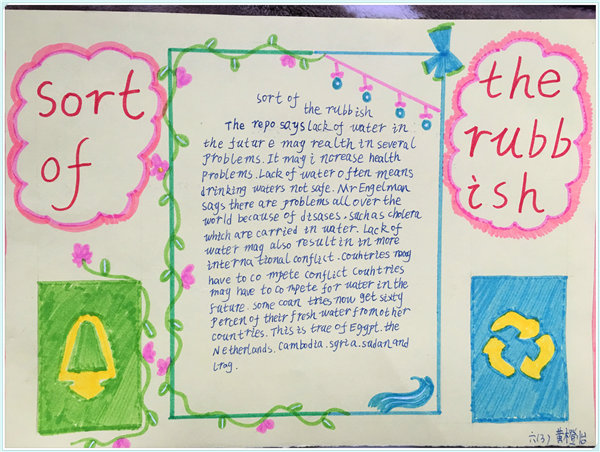 sort
of
the
rubb
ish
sort of
the rubbish
The repo says lack of water in
the future may realth in several
problems. It may increase health
problems. Lack of water often means
drinking waters not safe. Mr Engelman
says there are problems all over the
world because of disases. such as cholera
which are carried in water. Lack of
water may also result in in more
international conflict. countries may
have to compete conflict countries
may have to compete for water in the
future. some coan tries now get sixty
Percen of their fresh water from other
countries. This is true of Egypt. the
Netherlands. Cambodia. syria. sudan and
Irag.
六(3)黄橙